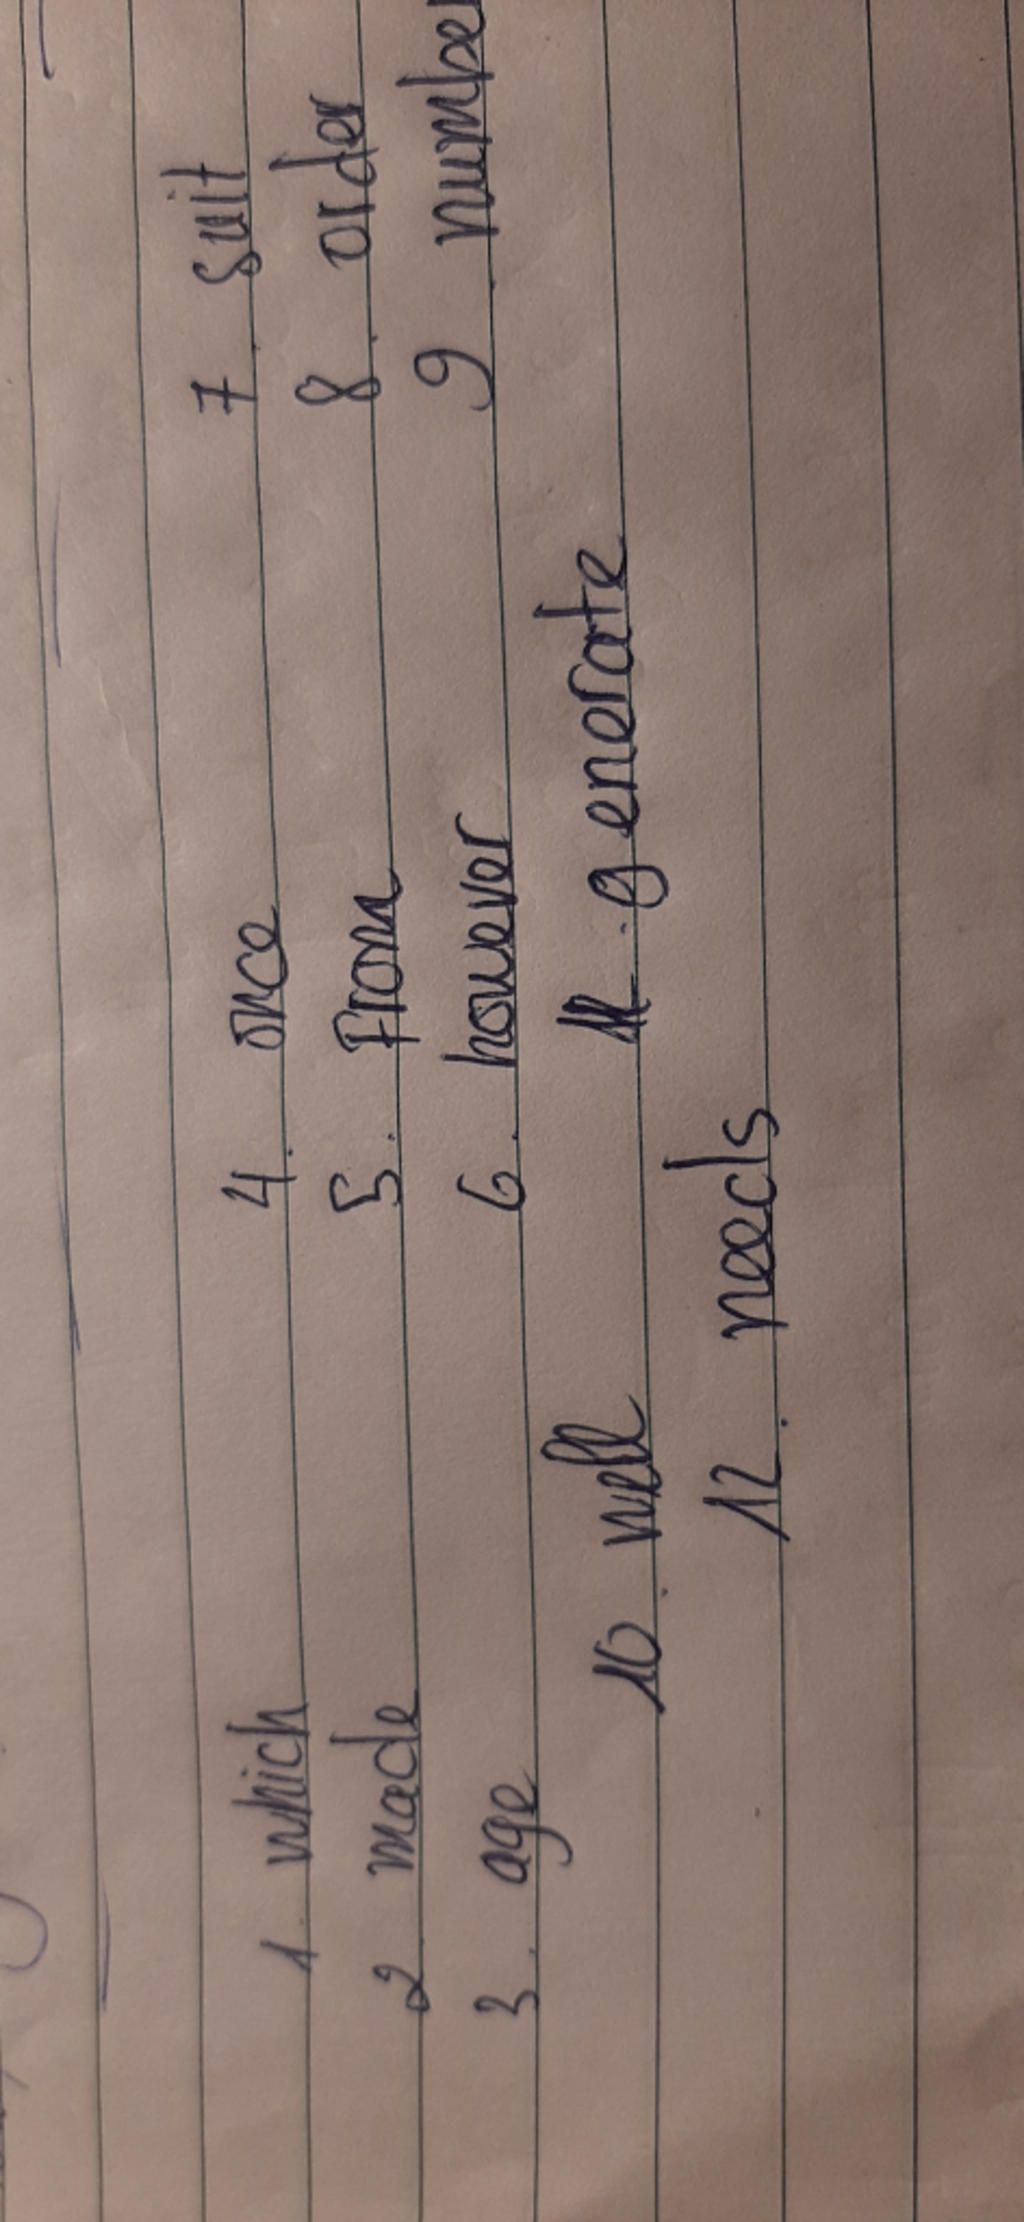 1. which 4. once 7. suit
2. made 5. From 8. order
3. age 6. however 9. number
10. well 11. generate
12. needs